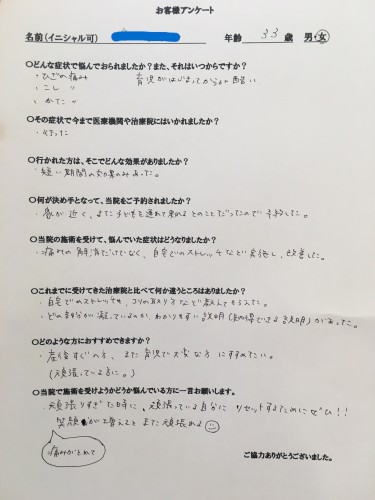 お客様アンケート
名前(イニシャル可) 年齢 33 歳 男・女
○どんな症状で悩んでおられましたか?また、それはいつからですか?
・ひざの痛み 育児がはじまってから 酷い
・こし 〃
・かた 〃
○その症状で今まで医療機関や治療院にはいかれましたか?
・行った
○行かれた方は、そこでどんな効果がありましたか?
・短い期間の効果のみあった。
○何が決め手となって、当院をご予約されましたか?
・家が近く、また子どもを連れて来れるとのことだったので予約した。
○当院の施術を受けて、悩んでいた症状はどうなりましたか?
・痛みの解消だけでなく、自宅でのストレッチなど実施し、改善した。
○これまでに受けてきた治療院と比べて何か違うところはありましたか?
・自宅でのストレッチや、コリの取り方など教えてもらえた。
・どの部分が凝っているのか、わかりやすい説明(納得できる説明)があった。
○どのような方におすすめできますか?
・産後すぐの方、また育児で大変な方にすすめたい。
(頑張っている方に。)
○当院で施術を受けようかどうか悩んでいる方に一言お願いします。
・頑張りすぎた時に、頑張っている自分にリセットするためにぜひ!!
笑顔が増えて、また頑張れる
痛みがとれて
ご協力ありがとうございました。